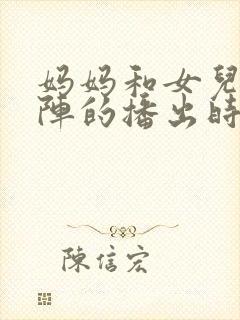 妈妈和女兒
陣的播出時
陳信宏